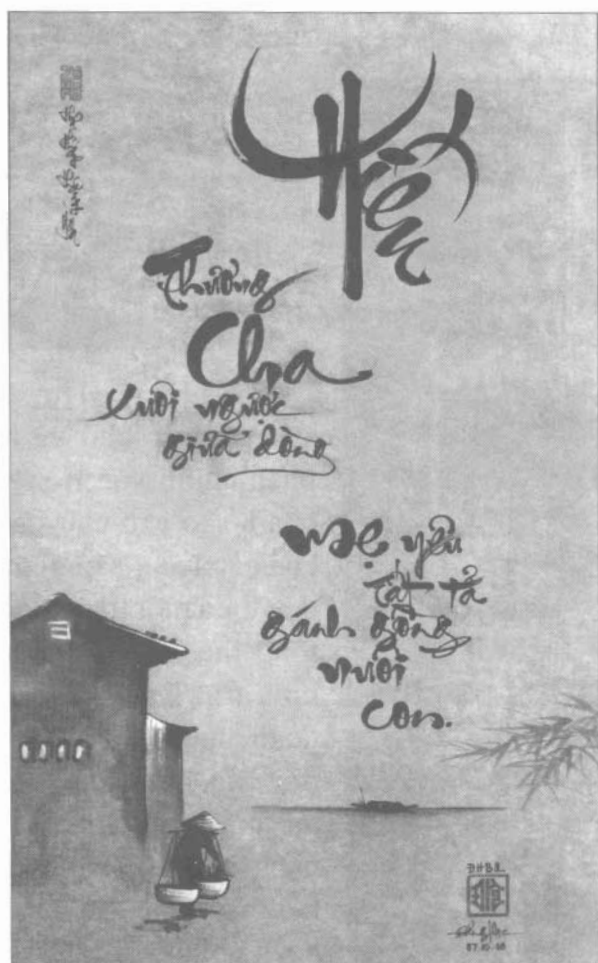 Hiếu
Thương
Cha
xuôi ngược
giữa dòng
Mẹ yêu
tất tả
gánh gồng
nuôi
con.